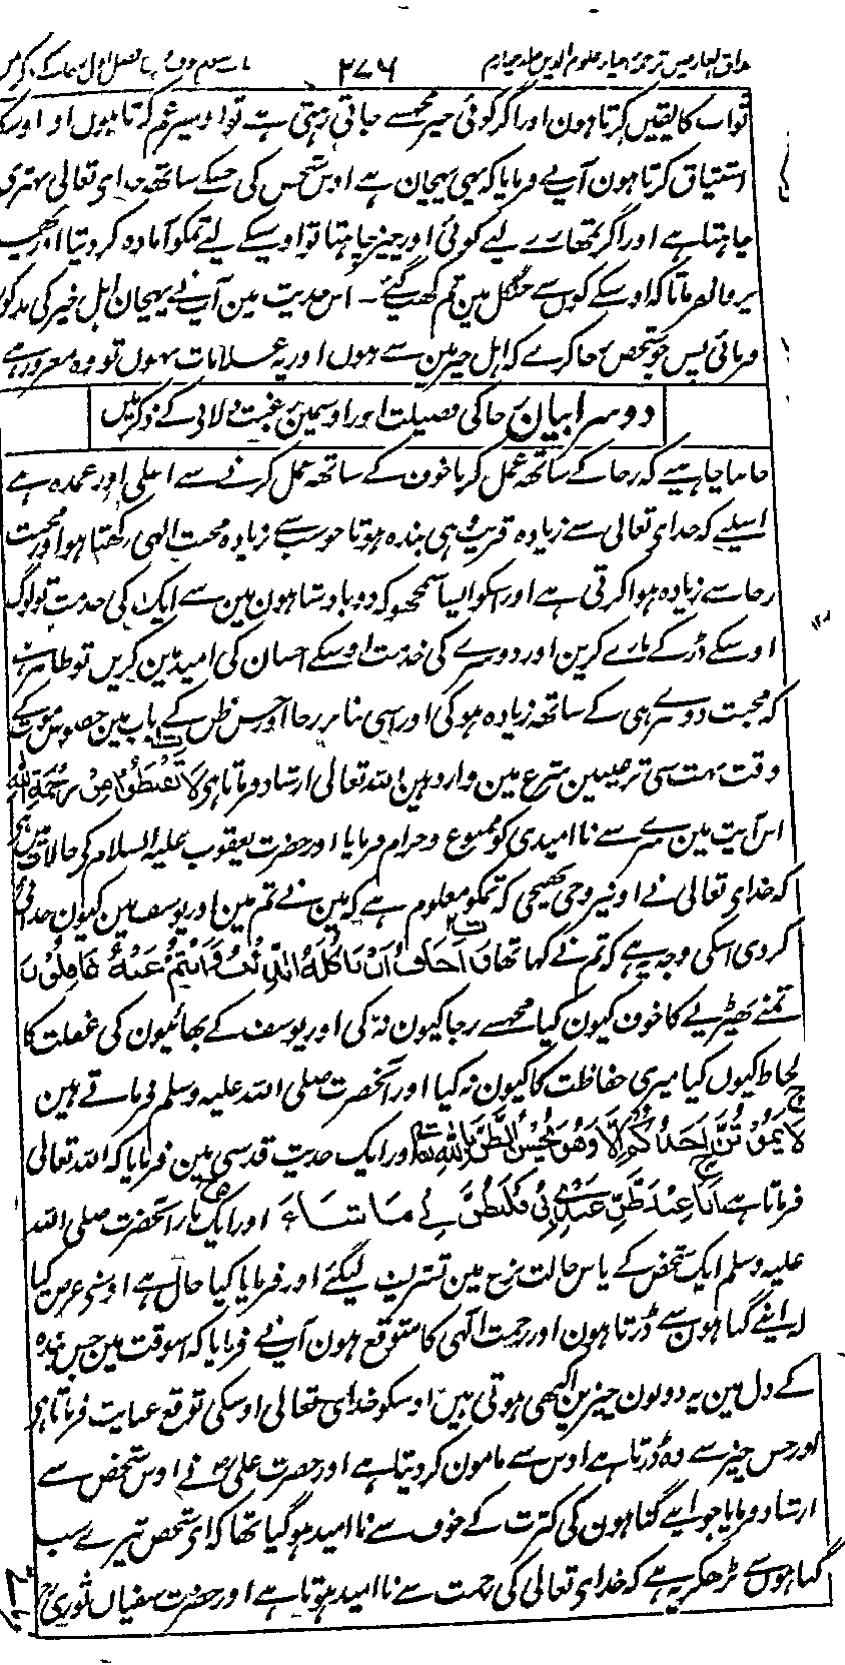 مذاق العارفین ترجمہ احیاء علوم الدین جلد چہارم ۲۷۶
ثواب کا یقین کرتا ہون اور اگر کوئی خیر مجھسے جاتی رہتی ہے تو اوسپر غم کرتا ہوں اور اوسکا
اشتیاق کرتا ہون آپنے فرمایا کہ یہی پہچان ہے اوس شخص کی جسکے ساتھ خدای تعالی بہتری
چاہتا ہے اور اگر تمھارے لیے کوئی اور چیز چاہتا تو اوسکے لیے تمکو آمادہ کر دیتا اور پھر
پروا نفرماتا کہ اوسکے کون سے جنگل مین تم کھپ گئے ـ اس حدیث مین آپنے پہچان اہل خیر کی مذکور
فرمائی پس جو شخص رجا کرے کہ اہل خیر مین سے ہوں اور یہ علامات نہوں تو وہ مغرور ہے
دوسرا بیان رجا کی فضیلت اور اوسمین رغبت دلانی کے ذکر مین
جاننا چاہیے کہ رجا کے ساتھ عمل کرنا خون کے ساتھ عمل کرنے سے اعلی اور عمدہ ہے
اسلیے کہ خدای تعالی سے زیادہ قریب وہی بندہ ہوتا جو سب سے زیادہ محبت الہی رکھتا ہو اور محبت
رجا سے زیادہ ہوا کرتی ہے اور اسکو ایسا سمجھو کہ دو بادشاہون مین سے ایک کی خدمت تو لوگ
اوسکے ڈر کے مارے کرین اور دوسرے کی خدمت اوسکے احسان کی امید مین کریں تو ظاہر ہے
کہ محبت دوسرے ہی کے ساتھ زیادہ ہوگی اور اسی بنا پر رجا اور حسن ظن کے باب مین خصوص موت کے
وقت بہت سی ترغیبین شرع مین وارد ہین اللہ تعالی ارشاد فرماتا ہی لَا تَقْنَطُوْا مِنْ رَّحْمَةِ اللهِ
اس آیت مین سرے سے نا امیدی کو ممنوع و حرام فرمایا اور حضرت یعقوب علیہ السلام کے حالات مین ہے
کہ خدای تعالی نے اونپر وحی بھیجی کہ تمکو معلوم ہے کہ مین نے تم مین اور یوسف مین کیون جدائی
کردی اسکی وجہ یہ ہے کہ تم نے کہا تھا اَخَافُ اَنْ يَّاْكُلَهُ الذِّئْبُ وَاَنْتُمْ عَنْهُ غَافِلُوْنَ
تمنے بھیڑیے کا خوف کیون کیا مجھسے رجا کیون نہ کی اور یوسف کے بھائیون کی غفلت کا
لحاظ کیوں کیا میری حفاظت کا کیون نہ کیا اور آنحضرت صلی اللہ علیہ وسلم فرماتے ہین
لَا يَمُوْتُنَّ اَحَدُكُمْ اِلَّا وَهُوَ يُحْسِنُ الظَّنَّ بِاللهِ تعالی اور ایک حدیث قدسی مین فرمایا کہ اللہ تعالی
فرماتا ہے اَنَا عِنْدَ ظَنِّ عَبْدِيْ بِيْ فَلْيَظُنَّ بِيْ مَا شَاءَ اور ایک بار آنحضرت صلی اللہ
علیہ وسلم ایک شخص کے پاس حالت نزع مین تشریف لیگئے اور فرمایا کیا حال ہے اوسنے عرض کیا
کہ اپنے گناہون سے ڈرتا ہون اور رحمت الہی کا متوقع ہون آپنے فرمایا کہ اسوقت مین جس بندہ
کے دل مین یہ دونون چیزین اکٹھی ہوتی ہین اوسکو خدای تعالی اوسکی توقع عنایت فرماتا ہی
اور جس چیز سے وہ ڈرتا ہے اوس سے مامون کر دیتا ہے اور حضرت علی رضہ نے اوس شخص سے
ارشاد فرمایا جو اپنے گناہون کی کثرت کے خوف سے نا امید ہوگیا تھا کہ ای شخص تیرے سب
گناہوں سے بڑھکر یہ ہے کہ خدای تعالی کی رحمت سے نا امید ہوتا ہے اور حضرت سفیاں ثوری رح